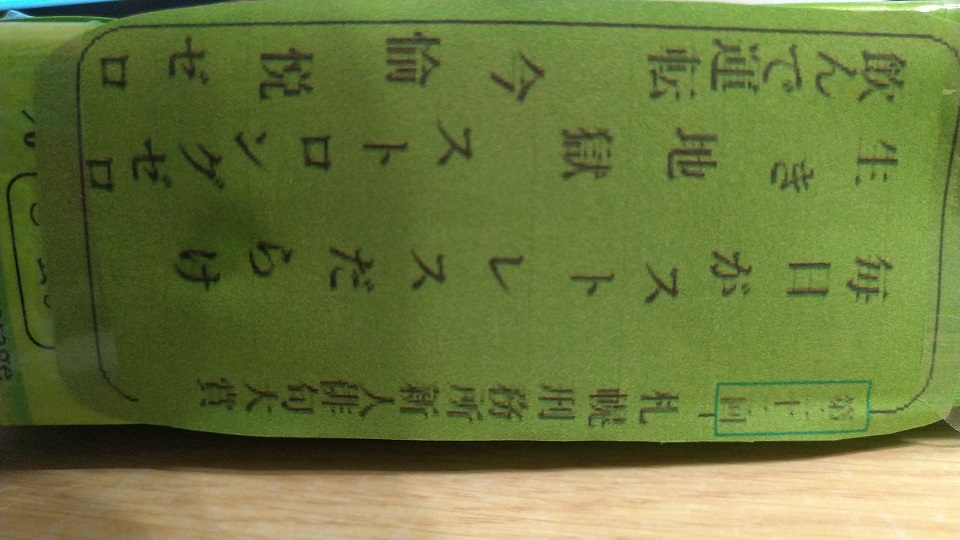 札幌刑務所新人俳句大賞
毎日がストレスだらけ
生き地獄ストロングゼロ
飲んで逆転今愉悦ゼロ